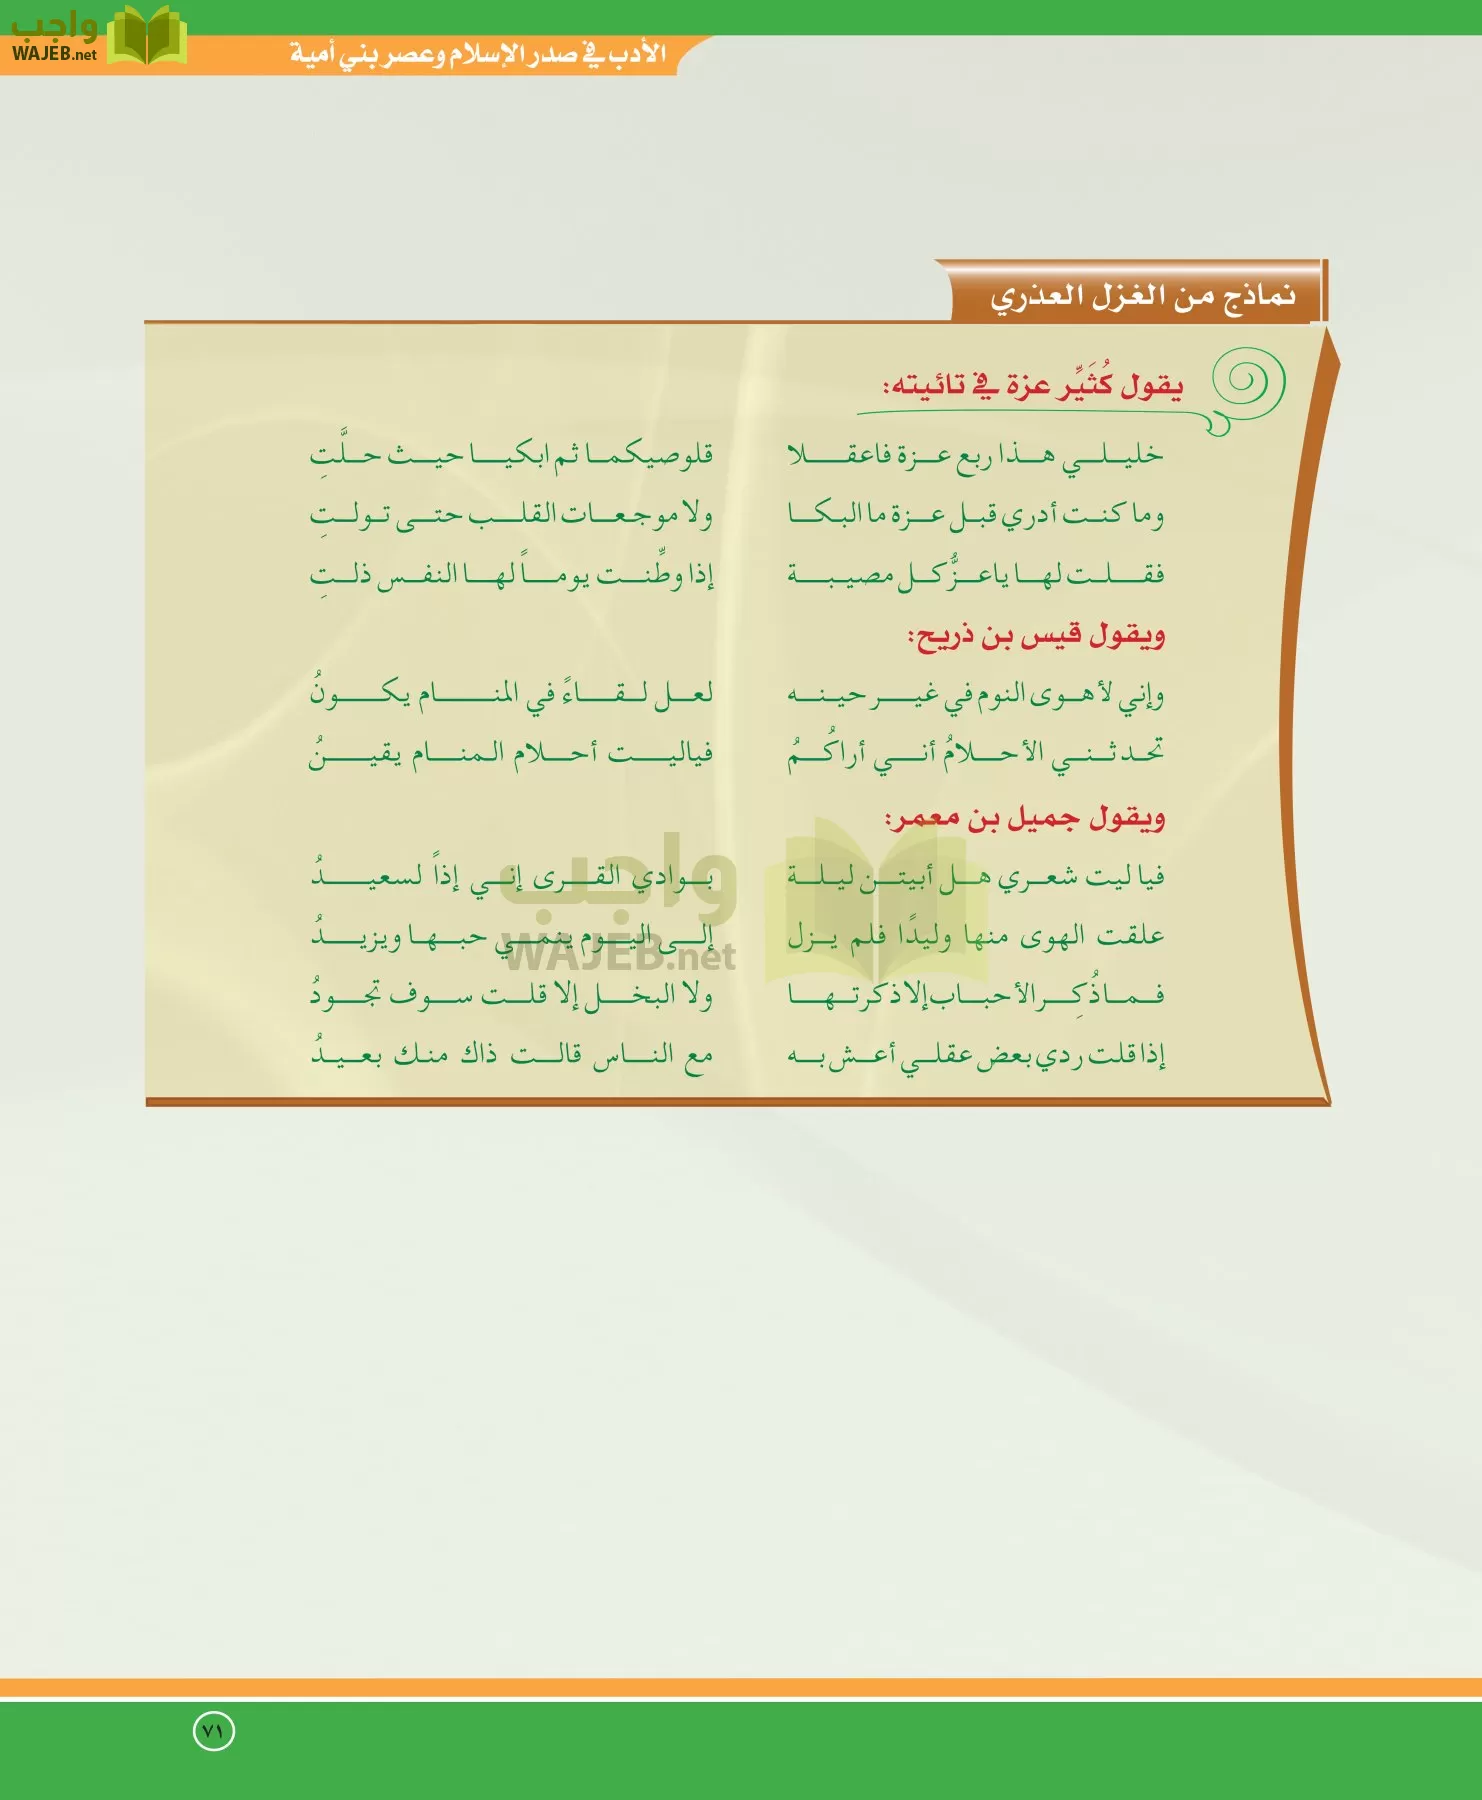 واجب
WAJEB.net
الأدب في صدر الإسلام وعصر بني أمية
نماذج من الغزل العذري
يقول كُثَيِّر عزة في تائيته:
خليلي هذا ربع عزة فاعقلا قلوصيكما ثم ابكيا حيث حلَّتِ
وما كنت أدري قبل عزة ما البكا ولا موجعات القلب حتى تولتِ
فقلت لها يا عزُّ كل مصيبة إذا وطِّنت يوماً لها النفس ذلتِ
ويقول قيس بن ذريح:
وإني لأهوى النوم في غير حينه لعل لقاءً في المنام يكونُ
تحدثني الأحلامُ أني أراكُمُ فياليت أحلام المنام يقينُ
ويقول جميل بن معمر:
فيا ليت شعري هل أبيتن ليلة بوادي القرى إني إذاً لسعيدُ
علقت الهوى منها وليدًا فلم يزل إلى اليوم ينمي حبها ويزيدُ
فما ذُكِر الأحباب إلا ذكرتها ولا البخل إلا قلت سوف تجودُ
إذا قلت ردي بعض عقلي أعش به مع الناس قالت ذاك منك بعيدُ
واجب
WAJEB.net
٧١